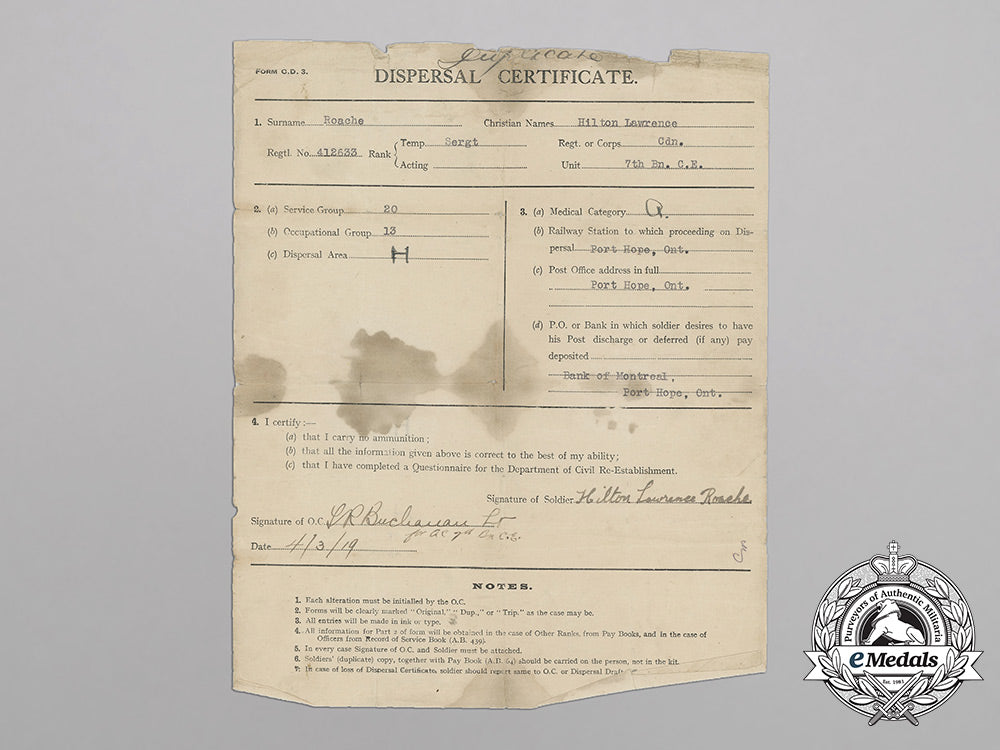 Duplicate
FORM C.D. 3.
DISPERSAL CERTIFICATE.
1. Surname Roache Christian Names Hilton Lawrence
Regtl. No. 412633 Rank { Temp. Sergt Regt. or Corps Cdn.
Acting Unit 7th Bn. C.E.
2. (a) Service Group 20
(b) Occupational Group 13
(c) Dispersal Area H
3. (a) Medical Category A.
(b) Railway Station to which proceeding on Dis-
persal Port Hope, Ont.
(c) Post Office address in full
Port Hope, Ont.
(d) P.O. or Bank in which soldier desires to have
his Post discharge or deferred (if any) pay
deposited
Bank of Montreal,
Port Hope, Ont.
4. I certify :—
(a) that I carry no ammunition ;
(b) that all the information given above is correct to the best of my ability;
(c) that I have completed a Questionnaire for the Department of Civil Re-Establishment.
Signature of Soldier Hilton Lawrence Roache
Signature of O.C. Buchanan Lt
for O.C 7th Bn C.E.
Date 4/3/19
NOTES.
1. Each alteration must be initialled by the O.C.
2. Forms will be clearly marked "Original," "Dup.," or "Trip." as the case may be.
3. All entries will be made in ink or type.
4. All information for Part 2 of form will be obtained in the case of Other Ranks, from Pay Books, and in the case of
Officers from Record of Service Book (A.B. 439).
5. In every case Signature of O.C. and Soldier must be attached.
6. Soldiers' (duplicate) copy, together with Pay Book (A.B. 64) should be carried on the person, not in the kit.
7. In case of loss of Dispersal Certificate, soldier should report same to O.C. or Dispersal
Purveyors of Authentic Militaria
eMedals
Est. 1981